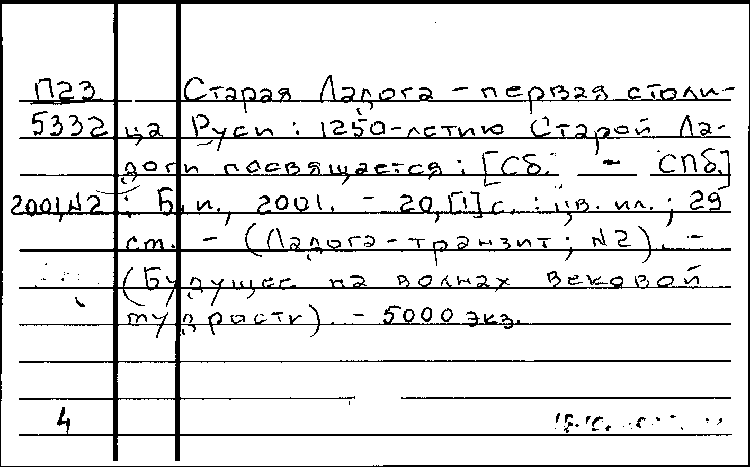 П23 Старая Ладога - первая столи-
5332 ца Руси : 1250-летию Старой Ла-
доги посвящается : [Сб. - СПб.]
2001, N2 : Б.и., 2001. - 20, [1] с. : цв. ил. ; 29
см. - (Ладога-транзит ; N2). -
(Будущее на волнах вековой
мудрости). - 5000 экз.
4